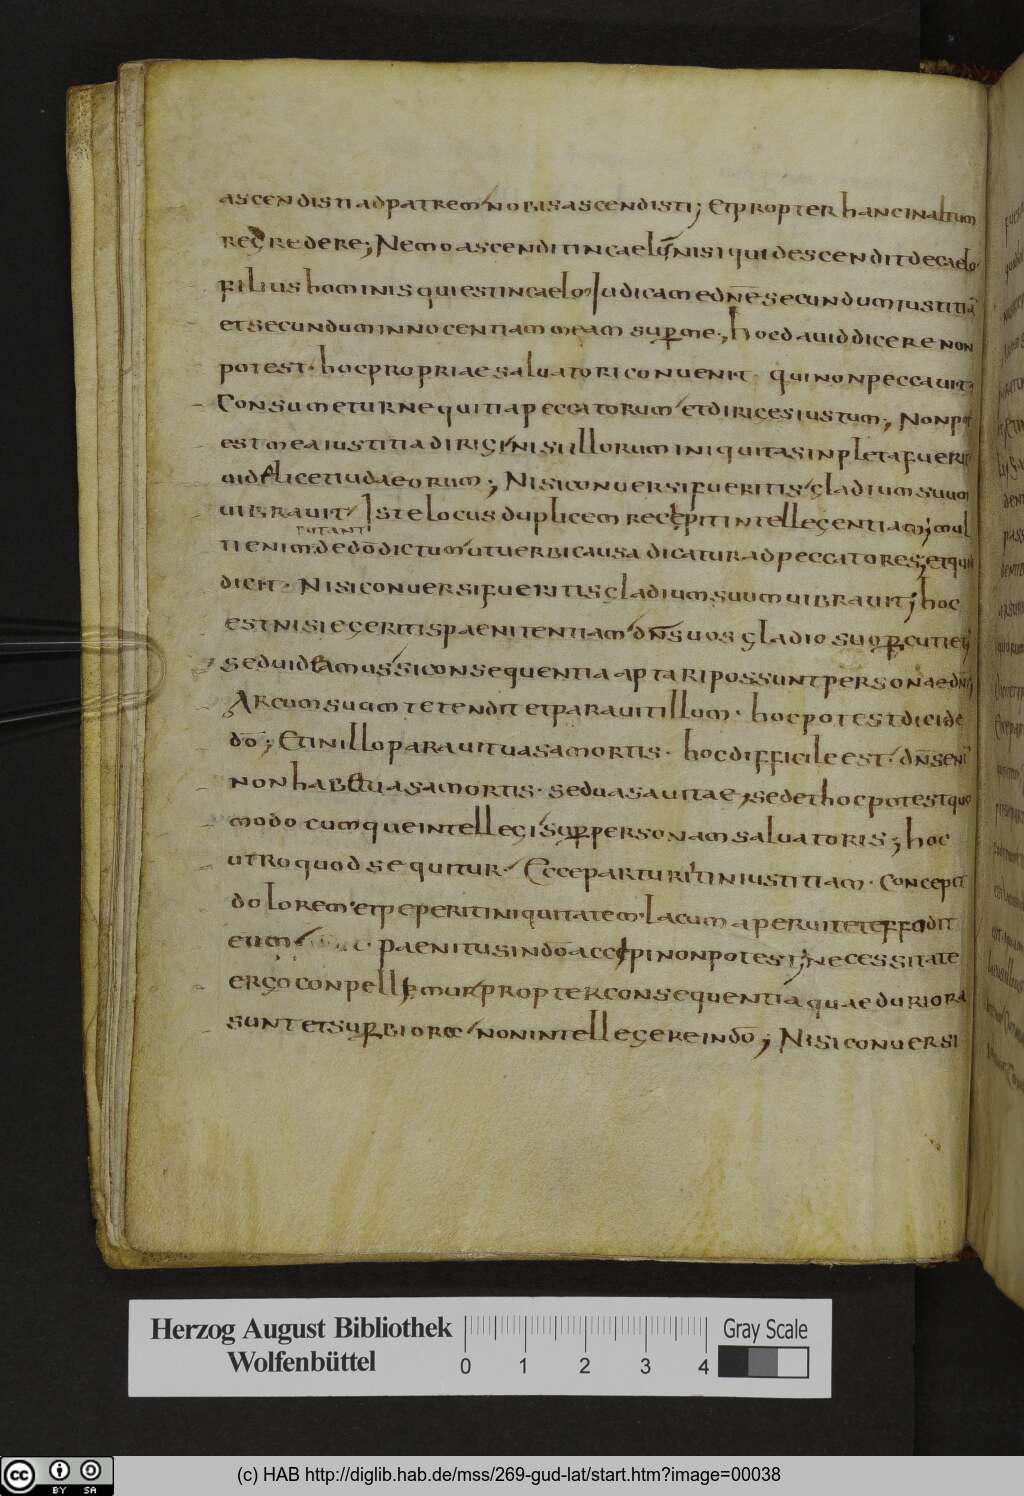 ascendisti ad patrem nobis ascendisti; Et propter hanc in altum
regredere; Nemo ascendit in caelū nisi qui descendit de caelo
filius hominis qui est in caelo Iudica me dn̄e secundum iustitiā
et secundum innocentiam meam super me; hoc dauid dicere non
potest · hoc propriae saluatori conuenit · qui non peccauit;
Consumetur nequitia peccatorum et diriges iustum; Non pot
est mea iustitia dirigi nisi illorum iniquitas inpleta fuerit
uidelicet iudaeorum; Nisi conuersi fueritis gladium suum
uibrauit Iste locus duplicem recepit intellegentiam; mul
putant
ti enim de dō dictum ut uerbi causa dicatur ad peccatores et quid
dicit · Nisi conuersi fueritis gladium suum uibrauit; hoc
est nisi egeritis paenitentiam dn̄s uos gladio suo percutiet;
sed uideamus si consequentia aptari possunt personae dn̄i;
Arcum suum tetendit et parauit illum · hoc potest dici de
dō; Et in illo parauit uasa mortis · hoc difficile est dn̄s enī
non habet uasa mortis · sed uasa uitae; sed et hoc potest quo
modo cumque intellegi super personam saluatoris; hoc
utro quod sequitur · Ecce parturit iniustitiam · concepit
dolorem et peperit iniquitatem · lacum aperuit et effodit
eum paenitus in dō accipi non potest; necessitate
ergo conpellemur propter consequentia quae duriora
sunt et superiora non intellegere in dō; Nisi conuersi
Herzog August Bibliothek
Wolfenbüttel
0 1 2 3 4
Gray Scale
cc BY SA
(c) HAB http://diglib.hab.de/mss/269-gud-lat/start.htm?image=00038